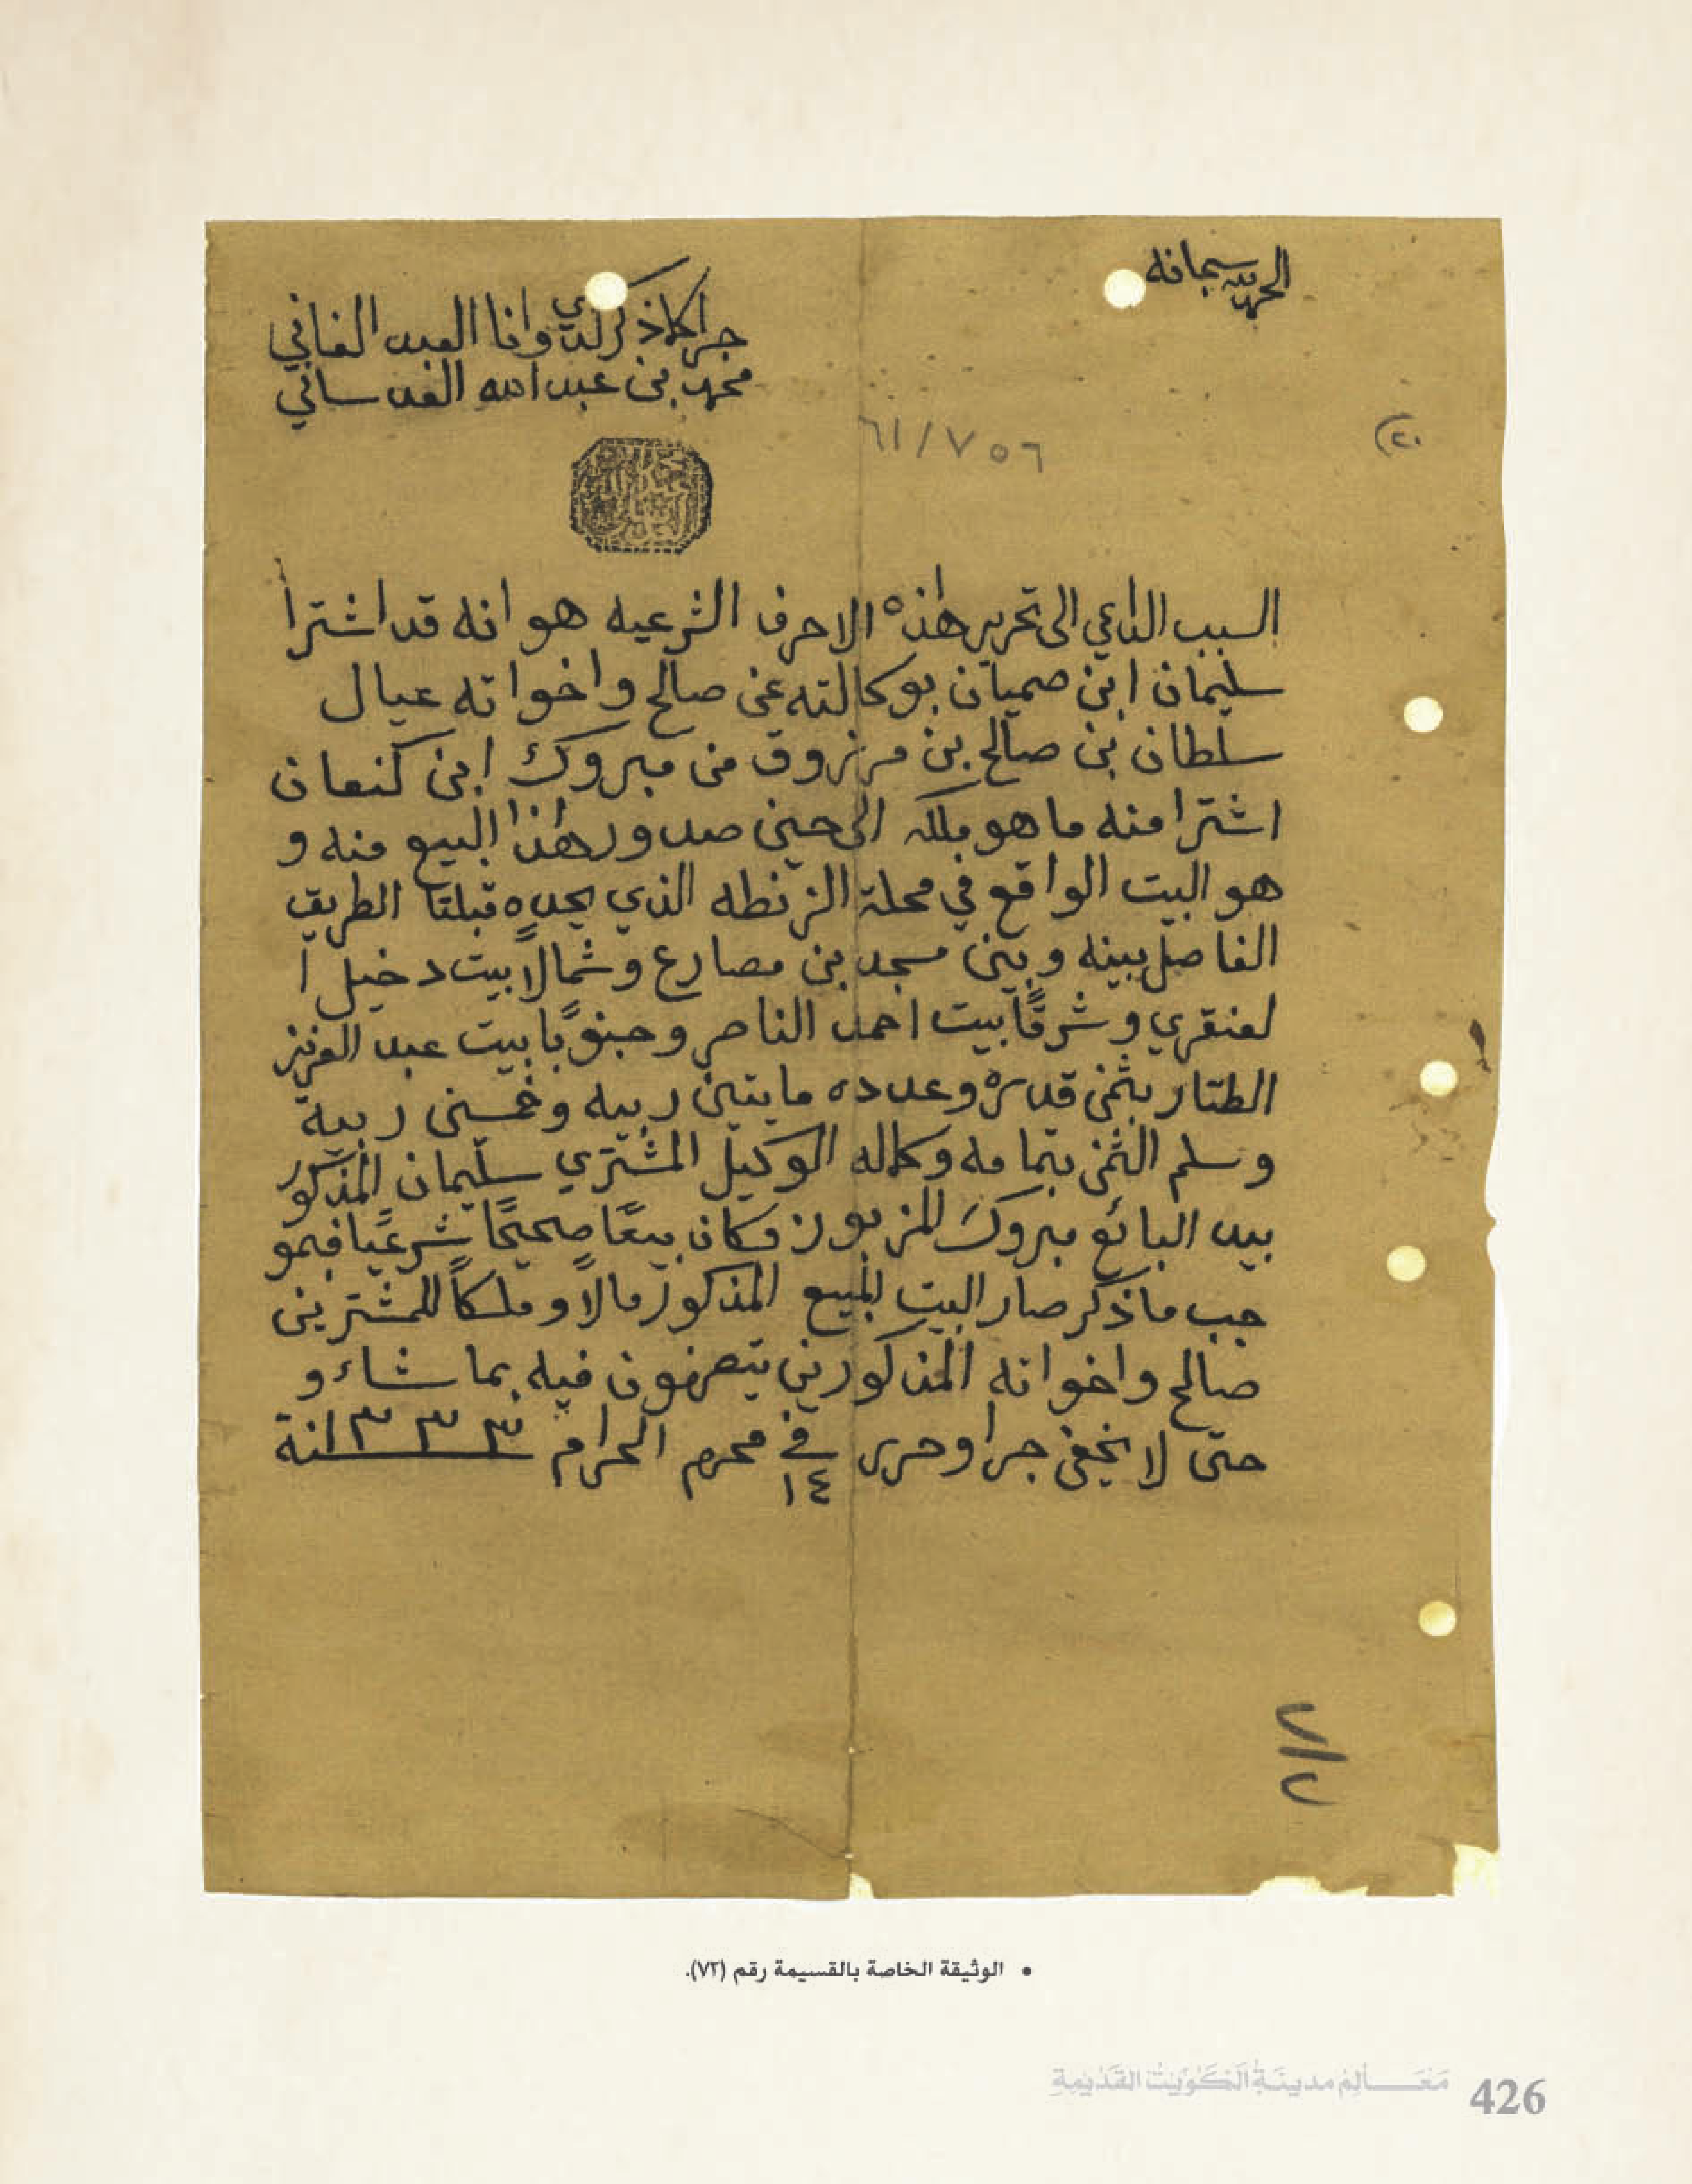 الحمد لله سبحانه
جرا كما ذكر لدي وانا العبد الفاني
محمد بن عبدالله العدساني
٦١/٧٥٦
(٢٠
السبب الداعي الى تحرير هاذه الاحرف الشرعيه هو انه قد اشترا
سليمان ابن صميان بوكالته عن صالح واخواته عيال
سلطان بن صالح بن مرزوق من مبروك ابن كنعان
اشترا منه ما هو ملكه الى حين صدور هاذا البيع منه و
هو البيت الواقع في محلة الزنطه الذي يحده قبلتا الطريق
الفاصل بينه وبين مسجد بن مصارع وشمالاً بيت دخيل ا
لعنقري وشرقًا بيت احمد الناصر وجنوبًا بيت عبد العزيز
الطتار بثمن قدره وعدده مايتين ربيه وخمسين ربية
وسلم الثمن بتمامه وكماله الوكيل المشتري سليمان المذكور
بيد البائع مبروك المزبور فكان بيعًا صحيحًا شرعيًا فبمو
جب ما ذكر صار البيت المبيع المذكور مالاً وملكاً للمشترين
صالح واخوانه المذكورين يتصرفون فيه بما شاء و
حتى لا يخفى جرا وحرر في ١٤ محرم الحرام ١٣٣٣ سنة
• الوثيقة الخاصة بالقسيمة رقم (٧٢).
مَعَالِمُ مدينَةِ الكُوَيْت القَدْيمَةِ
426